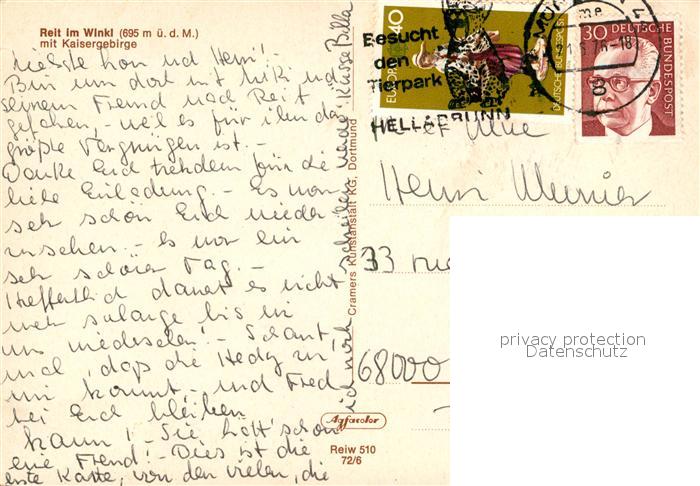 Reit im Winkl (695 m ü. d. M.)
mit Kaisergebirge
und Heni!
Bin um dort mit Niki und
seinem Freund nach Reit
gefahren, weil es für ihn das
größte Vergnügen ist. -
Danke Euch trotzdem für die
liebe Einladung. - Es war
sehr schön Euch wieder
zusehen - Es war ein
sehr schöner Tag. -
Hoffentlich dauert es nicht
mehr solange bis wir
uns wiedersehen! - Schaut,
und, dass die Hedy zu
mir kommt, und Fred
bei Euch bleiben
kann! - Sie hofft schon
eine Freud! - Dies ist die
erste Karte, von den vielen, die
ich noch schreiben werde! Küsse Billa
Cramers Kunstanstalt KG, Dortmund
Agfacolor
Reiw 510
72/6
EUROPA
40
DEUTSCHE BUNDESPOST
30
DEUTSCHE BUNDESPOST
Besucht
den
Tierpark
HELLABRUNN
Henri
33 rue
68000
privacy protection
Datenschutz